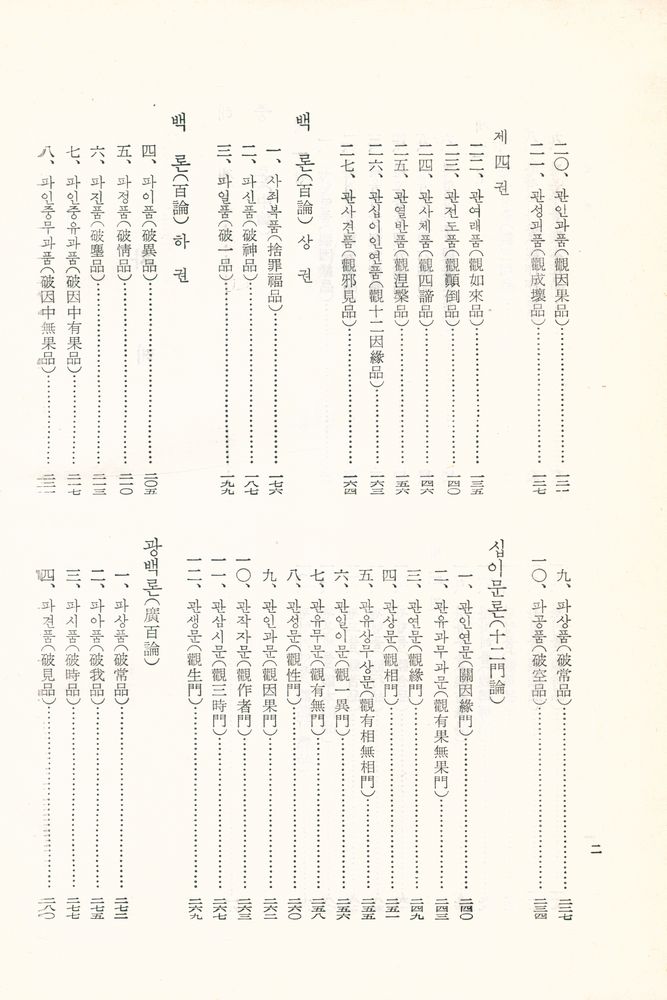 二〇、관인과품(觀因果品)……一二一
二一、관성괴품(觀成壞品)……一二七
제四권
二二、관여래품(觀如來品)……一三五
二三、관전도품(觀顚倒品)……一四〇
二四、관사체품(觀四諦品)……一四六
二五、관열반품(觀涅槃品)……一五六
二六、관십이인연품(觀十二因緣品)……一六三
二七、관사견품(觀邪見品)……一六四
백 론(百論) 상 권
一、사죄복품(捨罪福品)……一七六
二、파신품(破神品)……一八七
三、파일품(破一品)……一九九
백 론(百論) 하 권
四、파이품(破異品)……二〇五
五、파정품(破情品)……二一〇
六、파진품(破塵品)……二一三
七、파인중유과품(破因中有果品)……二一七
八、파인중무과품(破因中無果品)……
九、파상품(破常品)……二二七
一〇、파공품(破空品)……二三四
십이문론(十二門論)
一、관인연문(關因緣門)……二四〇
二、관유과무과문(觀有果無果門)……二四三
三、관연문(觀緣門)……二四九
四、관상문(觀相門)……二五一
五、관유상무상문(觀有相無相門)……二五五
六、관일이문(觀一異門)……二五六
七、관유무문(觀有無門)……二五八
八、관성문(觀性門)……二六〇
九、관인과문(觀因果門)……二六二
一〇、관작자문(觀作者門)……二六三
一一、관삼시문(觀三時門)……二六七
一二、관생문(觀生門)……二六九
광백론(廣百論)
一、파상품(破常品)……二七二
二、파아품(破我品)……二七五
三、파시품(破時品)……二七七
四、파견품(破見品)……二八〇
二